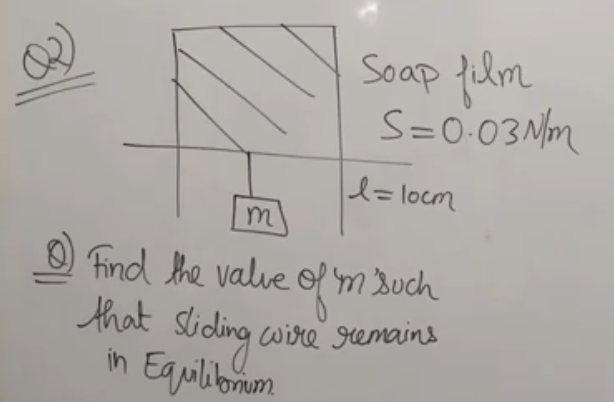 Q2)
Soap film
S = 0.03 N/m
l = 10cm
m
Q) Find the value of 'm' such
that sliding wire remains
in Equilibrium.